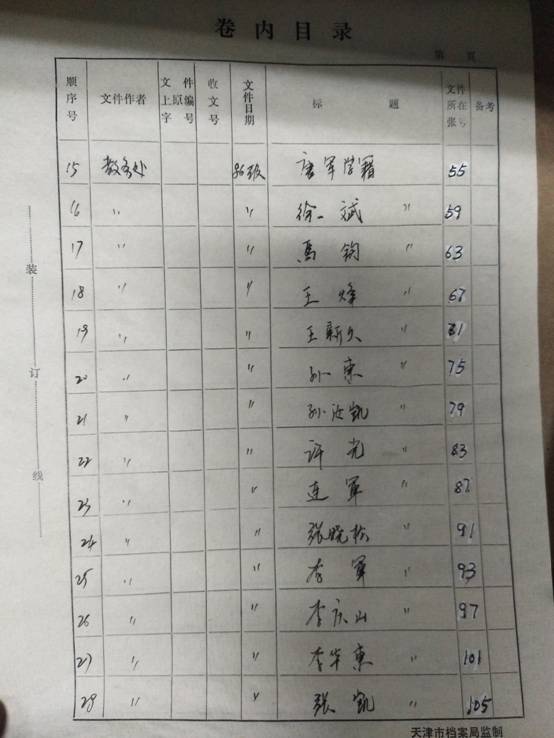 卷内目录
第 页
顺序号 文件作者 文件上原编字号 收文号 文件日期 标题 文件所在张号 备考
15 教务处 86级 唐军学籍 55
16 〃 〃 徐一斌 〃 59
17 〃 〃 马钧 〃 63
18 〃 〃 王烽 〃 67
19 〃 〃 王新久 〃 71
20 〃 〃 孙东 〃 75
21 〃 〃 孙汝凯 〃 79
22 〃 〃 许光 〃 83
23 〃 〃 连军 〃 87
24 〃 〃 张晓松 〃 91
25 〃 〃 李军 〃 93
26 〃 〃 李庆山 〃 97
27 〃 〃 李华东 〃 101
28 〃 〃 张凯 〃 105
装
订
线
天津市档案局监制